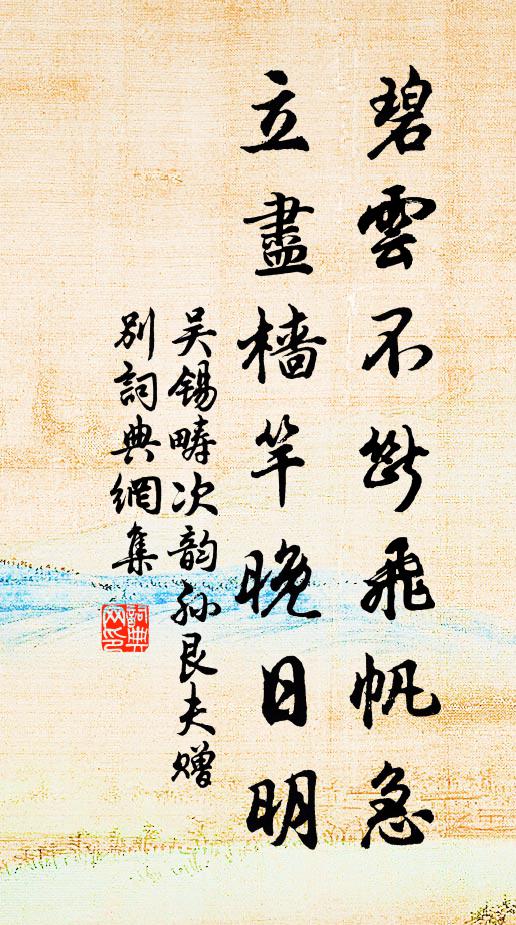 碧雲不斷飛帆急
立盡檣竿晚日明
吴錫畴次韵孙艮夫赠
别詞典網集
詞典
网印